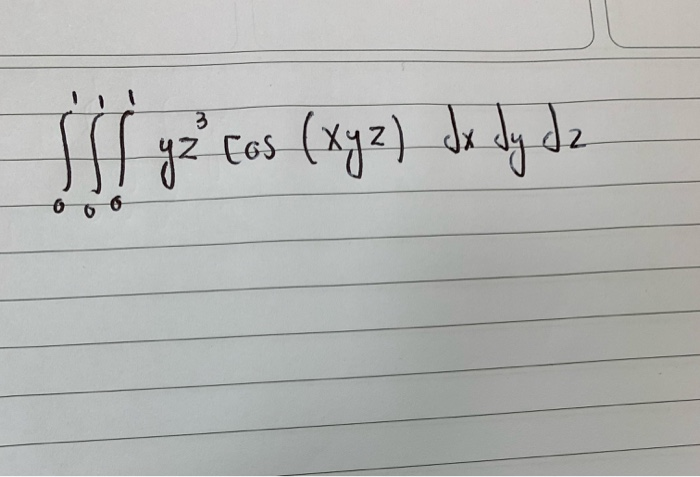 ∫₀¹∫₀¹∫₀¹ yz³ cos (xyz) dx dy dz